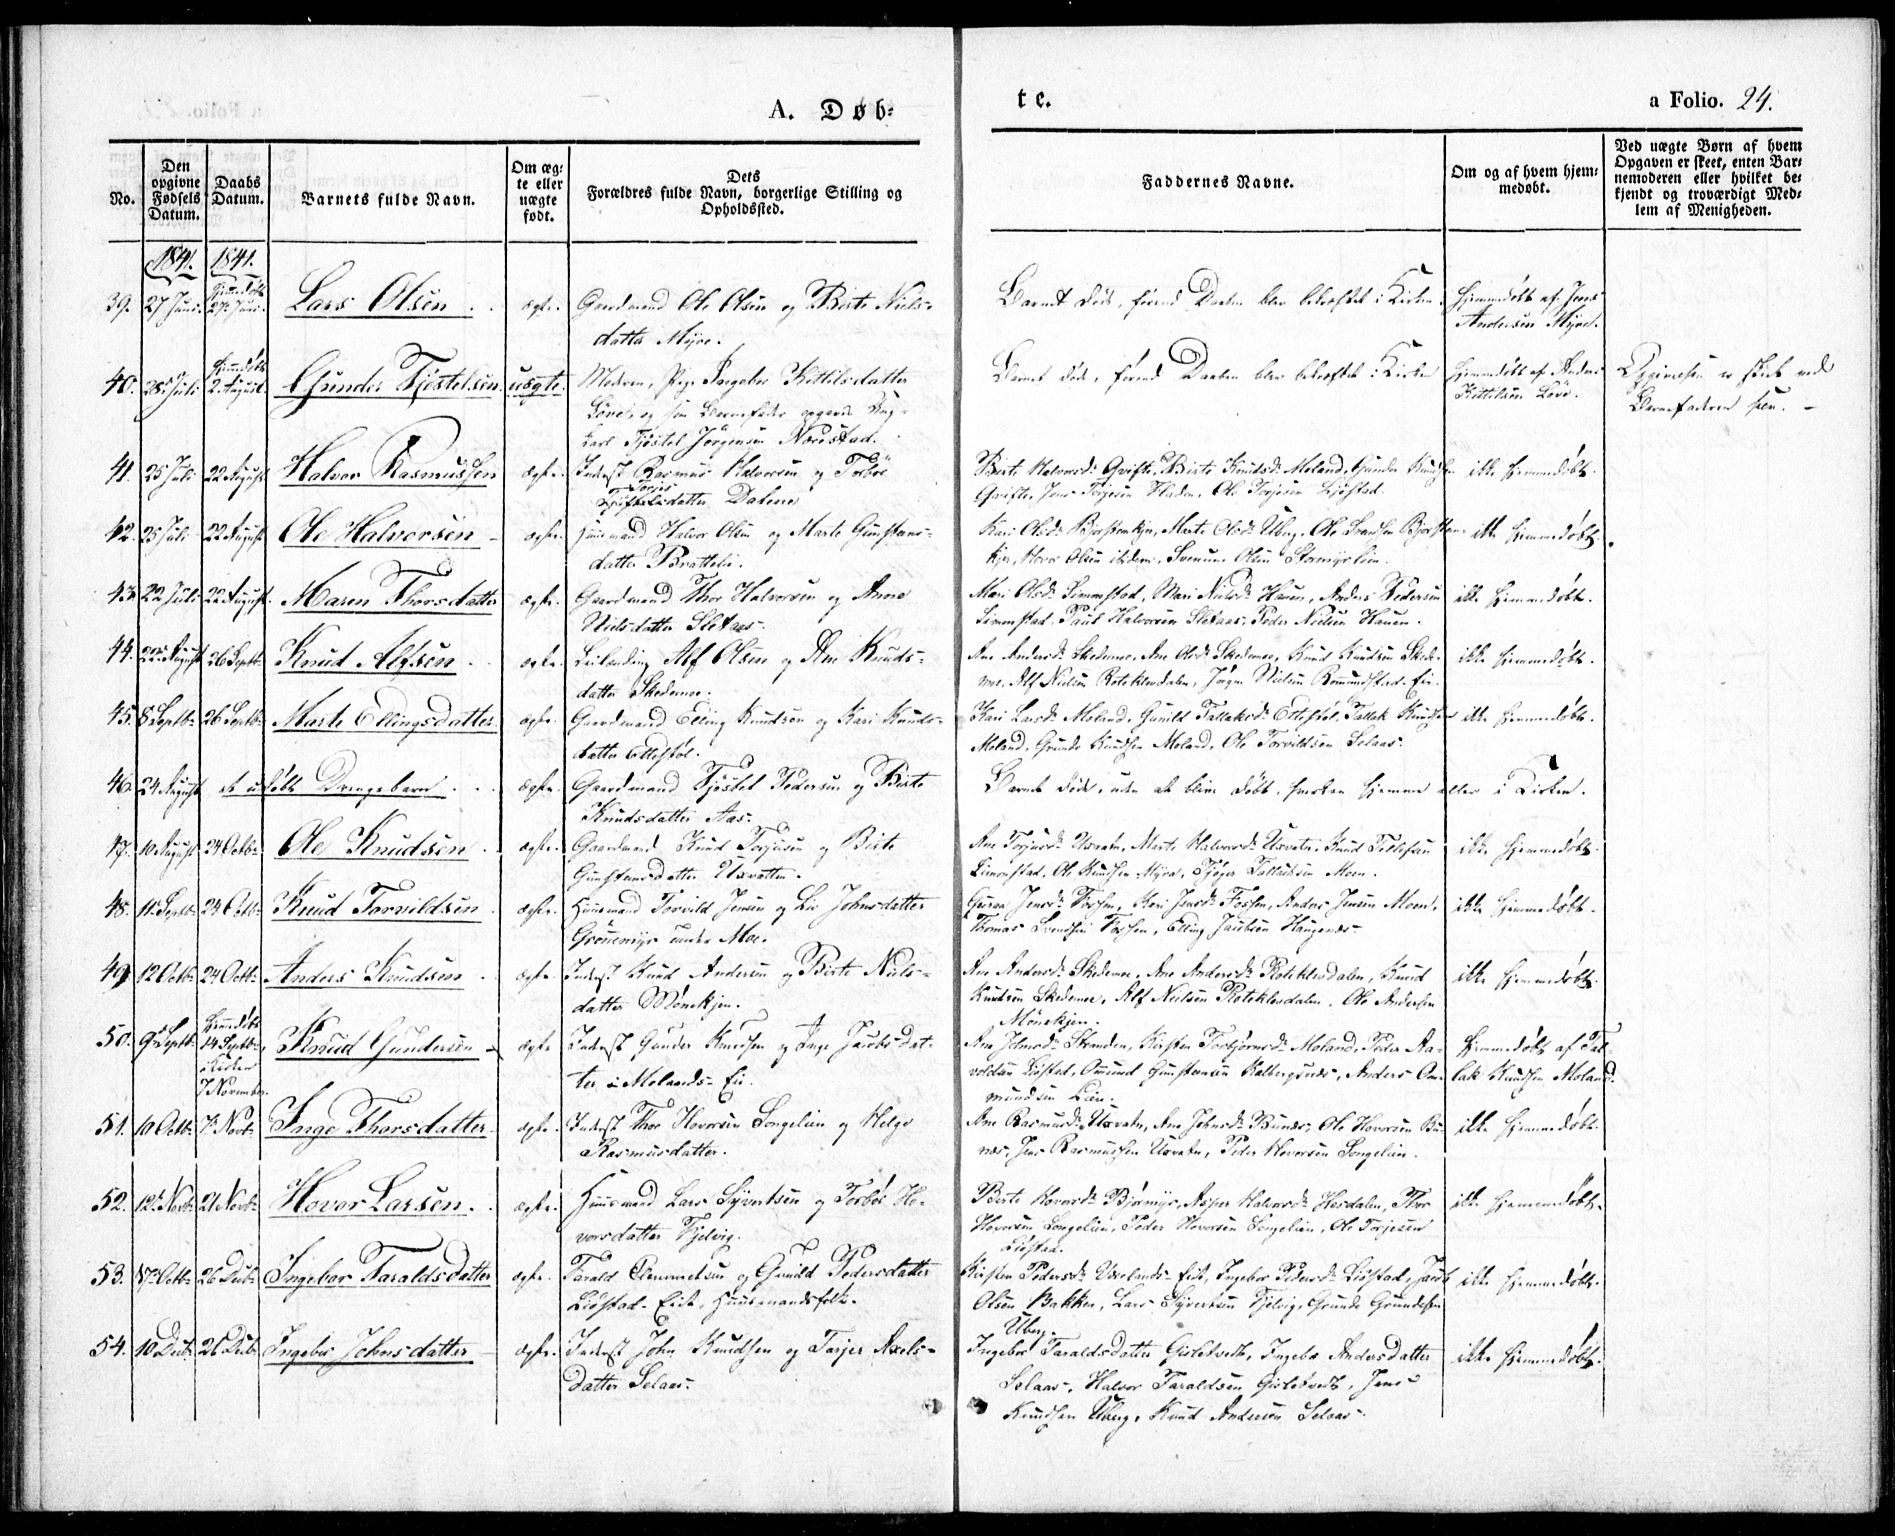 A. Døb=
te.
a Folio. 24.
No.
Den opgivne Fødsels Datum.
Daabs Datum.
Barnets fulde Navn.
Om ægte eller uægte født.
Dets
Forældres fulde Navn, borgerlige Stilling og
Opholdssted.
Faddernes Navne.
Om og af hvem hjem=
medøbt.
Ved uægte Børn af hvem
Opgaven er skeet, enten Bar=
nemoderen eller hvilket be=
kjendt og troværdigt Med=
lem af Menigheden.
1841. 1841.
39. 27 Juni. Hjemmedøbt 27 Juni. Lars Olsen ægte. Gaardmand Ole Olsen og Birte Niels=
datter Myre.
Barnet døde, førend Daaben blev bekræftet i Kirken. Hjemmedøbt af Jens
Andersen Myre.
40. 28 Juli Hjemmedøbt 2 August. Gunder Tjøstelsen uægte. Moderen, Pige Ingebor Kittilsdatter
Løve, og som Barnefader opgivet Ung=
karl Tjøstel Jørgensen Næristad.
Barnet døde, førend Daaben blev bekræftet i Kirken Hjemmedøbt af Anders
Kittilsen Løve.
Opgivelsen er skeet ved
Barnefaderen selv.
41. 25 Juli 22 August Halvor Rasmussen ægte. Inderst Rasmus Halvorsen og Torbor
datter Dalene
Birte Halvorsd. Gvifte, Birte Knudsd. Moland, Gunder Knudsen
Gvifte, Jens Torjesen Fladen, Ole Torjesen Liøstad. ikke hjemmedøbt.
42. 25 Juli 22 August Ole Halvorsen ægte. Huusmand Halvor Olsen og Marte Gunstens=
datter Brattelie.
Kari Olsd. Bjorstenkjen, Marte Olsd. Uberg, Ole Svendsen Bjorsten=
kjen, Hover Olsen ibidem, Svenum Olsen Stormyrlien. ikke hjemmedøbt.
43. 22 Juli 22 August. Maren Thorsdatter ægte. Gaardmand Thor Halvorsen og Anne
Nielsdatter Sletaas.
Mari Olsd. Simonstad, Mari Nielsd. Hauen, Anders Pedersen
Simonstad, Paul Halvorsen Sletaas, Peder Nielsen Hauen. ikke hjemmedøbt.
44. 22 August 26 Septb. Knud Alfsen ægte. Leilænding Alf Olsen og Ane Knuds=
datter Skedemoe.
Ane Andersd. Skedemoe, Ane Olsd. Skedemoe, Knud Knudsen Skede=
moe, Alf Nielsen Roteklevdalen, Jørgen Nielsen Rommundstad-Eie. ikke hjemmedøbt.
45. 8 Septb. 26 Septb. Marte Ellingsdatter ægte. Gaardmand Elling Knudsen og Kari Knuds=
datter Ettestøl.
Kari Larsd. Moland, Gunild Tallaksd. Ettestøl, Tallak Knudsen
Moland, Grunde Knudsen Moland, Ole Torvildsen Selaas. ikke hjemmedøbt.
46. 24 August et udøbt Drengebarn ægte. Gaardmand Tjøstel Pedersen og Birte
Knudsdatter Aas.
Barnet døde, uden at blive døbt, hverken hjemme eller i Kirken.
47. 10 August 24 Octb. Ole Knudsen ægte. Gaardmand Knud Torjusen og Birte
Gunstensdatter Uxvatten.
Ane Torjusd. Uxvatn, Marte Halvorsd. Uxvatn, Knud Tellefsen
Simonstad, Ole Knudsen Myra, Tjøger Tallaksen Moen. ikke hjemmedøbt.
48. 11 Septb. 24 Octb. Knud Torvildsen ægte. Huusmand Torvild Jensen og Liv Johnsdatter
Grønemyr under Moe.
Guroe Jensd. Fossen, Kari Jensd. Fossen, Anders Jensen Moen,
Thomas Svendsen Fossen, Elling Jacobsen Haugenes. ikke hjemmedøbt.
49 12 Octb. 24 Octb. Anders Knudsen ægte Inderst Knud Andersen og Birte Niels=
datter Mønekjen.
Ane Andersd. Skedemoe, Ane Andersd. Roteklevdalen, Knud
Knudsen Skedemoe, Alf Nielsen Roteklevdalen, Ole Andersen
Mønekjen. ikke hjemmedøbt.
50. 9 Septb. Hjemmedøbt 14 Septb., i Kirken 7 November. Knud Gundersen ægte Inderst Gunder Knudsen og Inge Jacobsdat=
ter i Molands-Eie.
Ane Jensd. Stranden, Kirsten Torbjørnsd. Moland, Peder Aa=
voldsen Liøstad, Omund Gunstensen Kalbergsnæs, Anders Om=
mundsen Lien. Hjemmedøbt af Tal=
lak Knudsen Moland.
51. 10 Octb. 7 Novb. Inge Thorsdatter ægte. Inderst Thor Hovorsen Songelien og Helge
Rasmusdatter.
Ane Rasmusd. Uxvatn, Ane Johnsd. Bunæs, Ole Hovorsen Bu=
næs, Jens Rasmussen Uxvatn, Peder Hovorsen Songelien. ikke hjemmedøbt.
52. 12 Novb. 21 Novb. Hovor Larsen. ægte. Huusmand Lars Syvertsen og Torbor Ho=
vorsdatter Tjelvig.
Birte Hovorsd. Bjørmyr, Asper Halvorsd. Hesdalen, Thor
Hovorsen Songelien, Peder Hovorsen Songelien, Ole Torjesen
Liøstad. ikke hjemmedøbt.
53. 17 Octb. 26 Decb. Ingebor Taraldsdatter ægte. Tarald Clemmetsen og Gunild Pedersdatter
Liøstad-Eiet, Huusmandsfolk.
Kirsten Pedersd. Uxelands-Eiet, Ingebor Pedersd. Liøstad, Jacob
Olsen Bakken, Lars Syvertsen Tjelvig, Grunde Grundesen
Uberg. ikke hjemmedøbt.
54. 10 Decb. 26 Decb. Ingebor Johnsdatter ægte. Inderst John Knudsen og Tarjer Axels=
datter Selaas.
Ingebor Taraldsdatter Gisletvedt, Ingebor Andersdatter
Selaas, Halvor Taraldsen Gisletvedt, Jens
Knudsen Uberg, Knud Andersen Selaas. ikke hjemmedøbt.